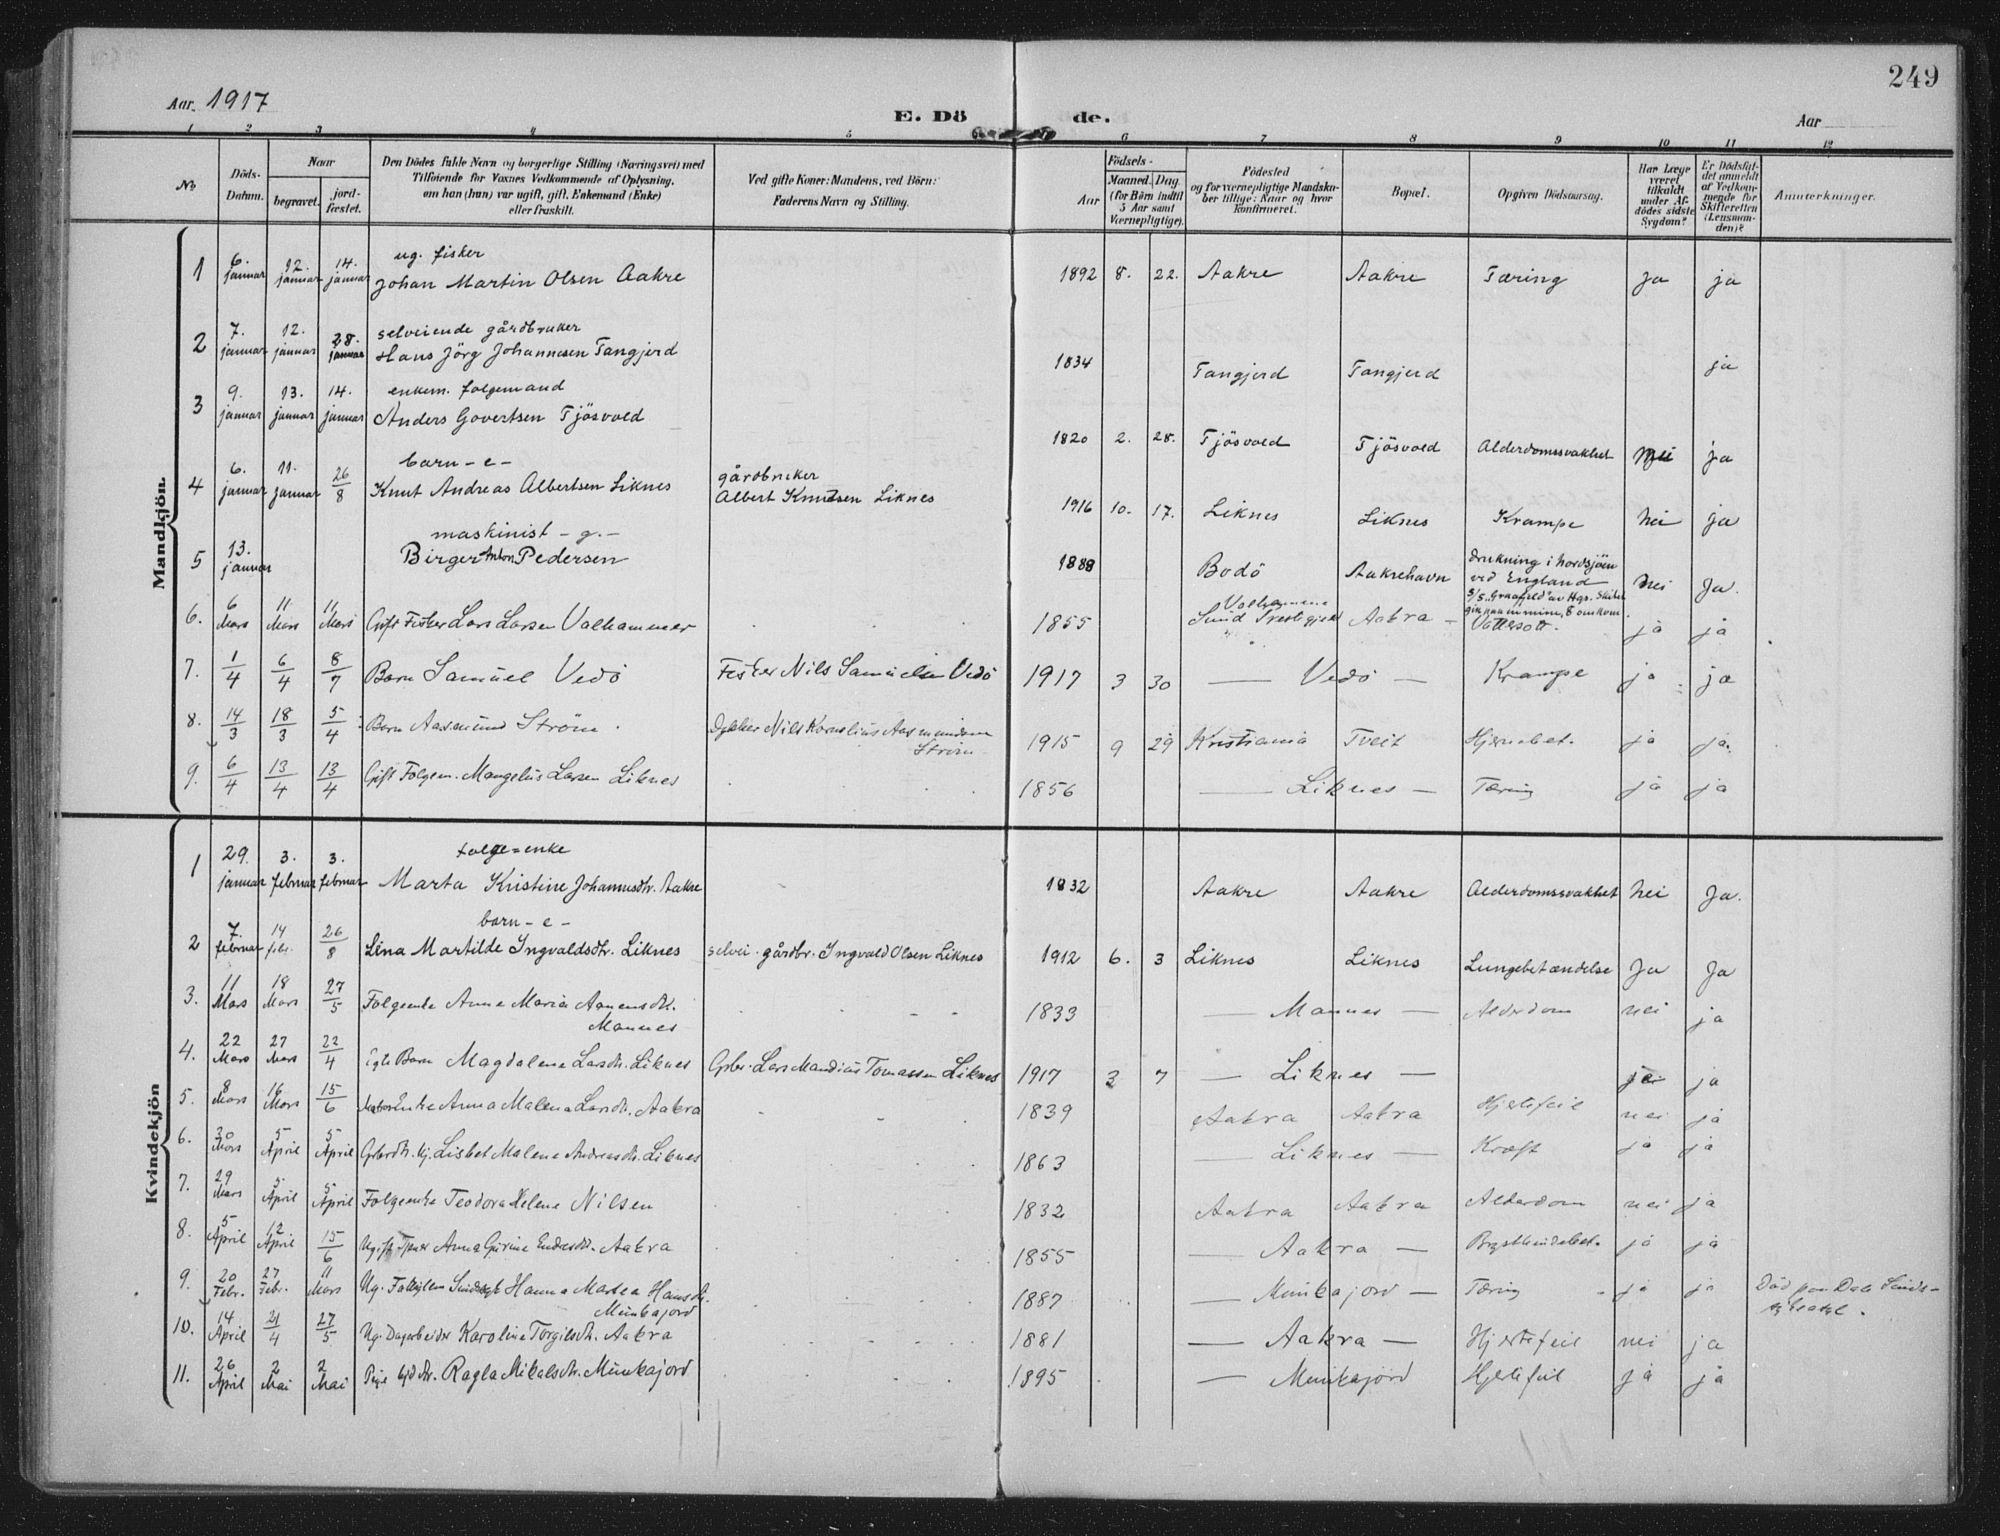 249
Aar 1917
E. Dö de.
Aar
1 2 3 4 5 6 7 8 9 10 11 12
No
Döds-Datum.
Naar
begravet.
jord-fæstet.
Den Dödes fulde Navn og borgerlige Stilling (Næringsvei) med
Tilföiende for Voxnes Vedkommende af Oplysning,
om han (hun) var ugift, gift, Enkemand (Enke)
eller fraskilt.
Ved gifte Koner: Mandens, ved Börn:
Faderens Navn og Stilling.
Födsels-
Aar
Maaned. Dag.
(for Börn indtil
5 Aar samt
Værnepligtige).
Födested
og for værnepligtige Mandska-
ber tillige: Naar og hvor
konfirmeret.
Bopæl.
Opgiven Dödsaarsag.
Har Læge
været
tilkaldt
under Af-
dödes sidste
Sygdom?
Er Dödsfal-
det anmeldt
af Vedkom-
mende for
Skifteretten
(Lensman-
den)?
Anmærkninger.
Mandkjön.
1 6. januar 12. januar 14. januar ug. fisker
Johan Martin Olsen Aakre 1892 8. 22. Aakre Aakre Tæring Ja ja
2 7. januar 12. januar 28. januar selveiende gårdbruker
Hans Jörg Johannesen Tangjerd 1834 Tangjerd Tangjerd ja
3 9. januar 13. januar 14. januar enkem. folgemand
Anders Govertsen Tjösvold 1820 2. 28. Tjösvold Tjösvold Alderdomssvakhet nei ja
4 6. januar 11. januar 26/8 barn - e -
Knut Andreas Albertsen Liknes gårdbruker
Albert Knutsen Liknes 1916 10. 17. Liknes Liknes Krampe nei ja
5 13. januar maskinist - g. -
Birger Anton Pedersen 1888 Bodö Aakrehavn drukning i nordsjöen
ved England nei Ja.
S/S. av Hgs.
gik paa en mine, 8 omkom.
6. 6 Mars 11 Mars 11 Mars Gift Fisker Lars Larsen Valhammer 1855 Valhammer
Sund Aakra Vattersott. ja ja
7. 1/4 6/4 8/7 Barn Samuel Vedö Fisker Nils Samuelsen Vedö 1917 3 30 — Vedö — Krampe ja ja
8. 14/3 18/3 5/4 Barn Aasmund Ström Nils Kornelius Aasmundsen
Ström 1915 9 29 Kristiania Tveit Hjernebet. ja ja
9. 6/4 13/4 13/4 Gift Folgem. Mangelus Larsen Liknes 1856 — Liknes — Tæring ja ja
Kvindekjön
1 29. januar 3. februar 3. februar folge=enke
Marta Kristine Johannesdtr. Aakre 1832 Aakre Aakre Alderdomssvakhet nei Ja.
2 7. februar 14 febr. 26/8 barn - e -
Lina Martilde Ingvaldsdtr. Liknes selvei. gårdbr. Ingvald Olsen Liknes 1912 6. 3 Liknes Liknes Lungebetændelse Ja Ja
3. 11 Mars 18 Mars 27/5 Folgeenke Anne Maria Aanensdtr.
Mannes 1833 — Mannes — Alderdom nei ja
4. 22 Mars 27 Mars 22/4 Egte Barn Magdalene Larsdtr. Liknes Gbr. Lars Mandius Tomassen Liknes 1917 3 7 — Liknes — ja
5. 8 Mars 16 Mars 15/6 Enke Anna Malena Larsdtr. Aakra 1839 Aakra Aakra Hjertefeil nei ja
6. 30 Mars 5 April 5 April Gbrdtr. Ug. Lisbet Malene Andreasdtr. Liknes 1863 — Liknes — Kræft ja ja
7. 29 Mars 5 April 5 April Folgeenke Teodora Helene Nilsen 1832 Aakra Aakra Alderdom nei ja
8. 5 April 12 April 15/6 Ugift Anna Gurine Endresdtr. Aakra 1855 — Aakra — Brysthindebet. ja ja
9. 20 Febr. 27 Febr. 11 Mars Ug. Hanna Martea Hansdtr.
Munkajord 1887 — Munkajord — Tæring ja ja Död paa Dale Sinds-
sygeasyl.
10. 14 April 21/4 27/5 Ug. Dagarbeider Karoline Torgilsdtr. Aakra 1881 — Aakra — Hjertefeil nei ja
11. 26 April 2 Mai 2 Mai Pige Ragla Mikalsdtr. Munkajord 1895 — Munkajord Hjertefeil ja ja